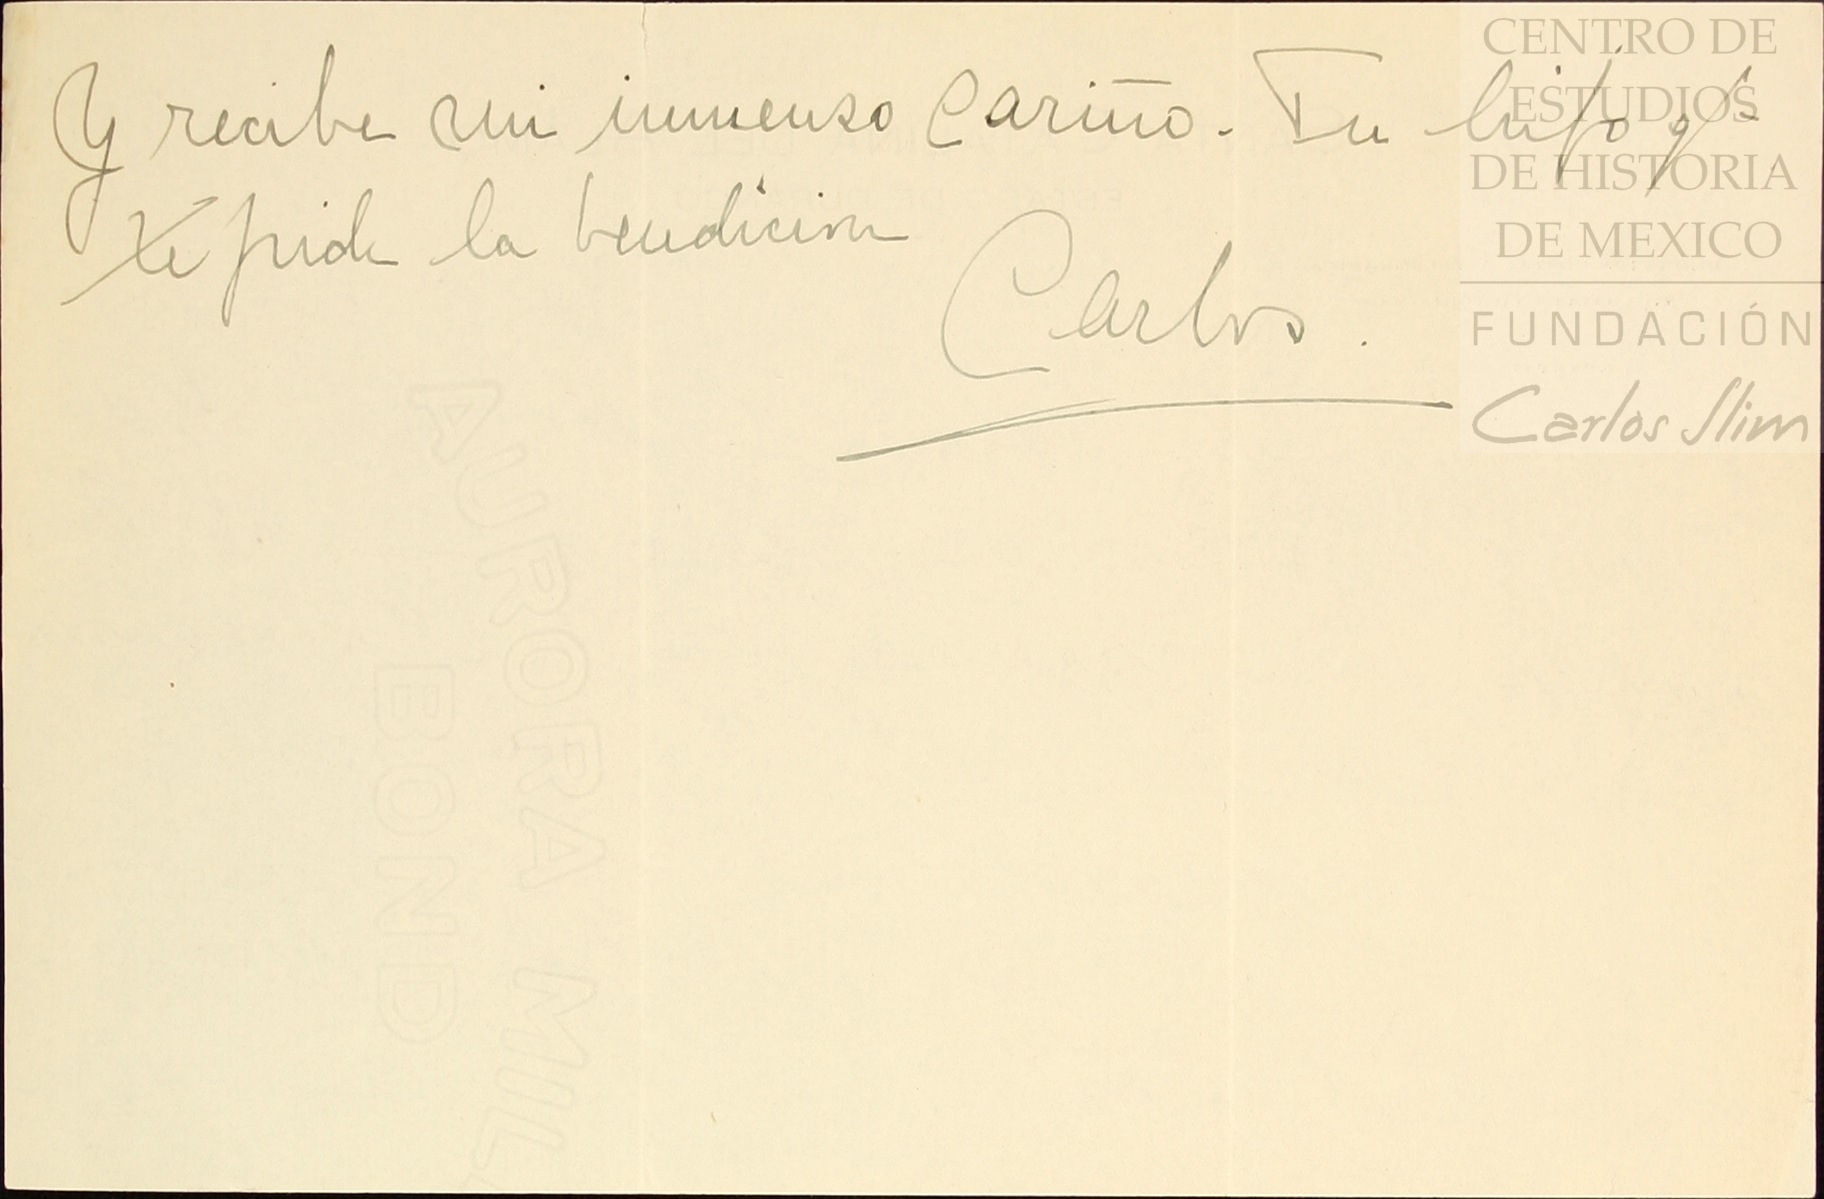 Y recibe mi inmenso cariño. Tu hijo q'
te pide la bendicion
Carlos.
CENTRO DE
ESTUDIOS
DE HISTORIA
DE MEXICO
FUNDACIÓN
Carlos Slim
AURORA MIL
BOND